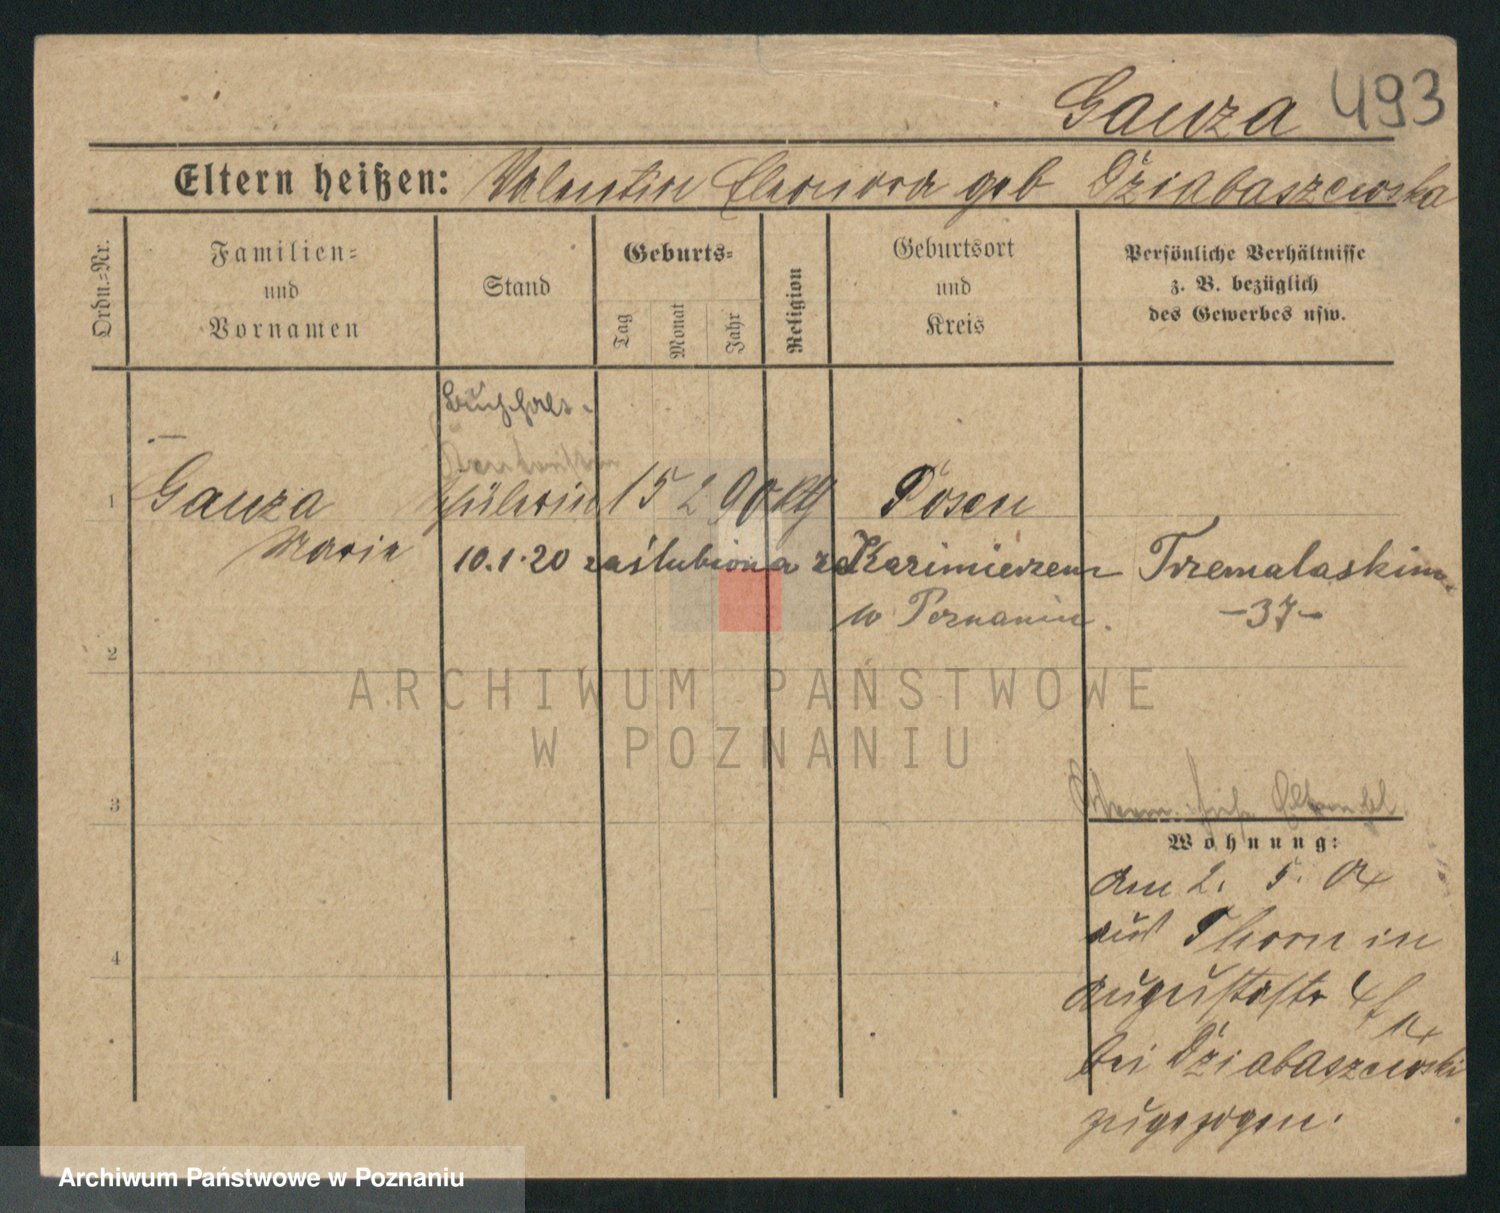 Gauza 493
Eltern heißen: Valentin Eleonora geb Dziabaszewska
Ordn.-Nr.
Familien-
und
Vornamen
Stand
Geburts-
Tag
Monat
Jahr
Religion
Geburtsort
und
Kreis
Persönliche Verhältnisse
z. B. bezüglich
des Gewerbes usw.
1 Gauza Schülerin 15 2 90 kth Posen
Maria 10.1.20 zaślubiona z Kazimierzem Trzemalaskim
w Poznaniu. -37-
2
3
4
Wohnung:
am 2. 5. 04
aus Thorn in
Augustastr 4
bei Dziabaszewski
zugezogen.
ARCHIWUM PAŃSTWOWE
W POZNANIU
Archiwum Państwowe w Poznaniu